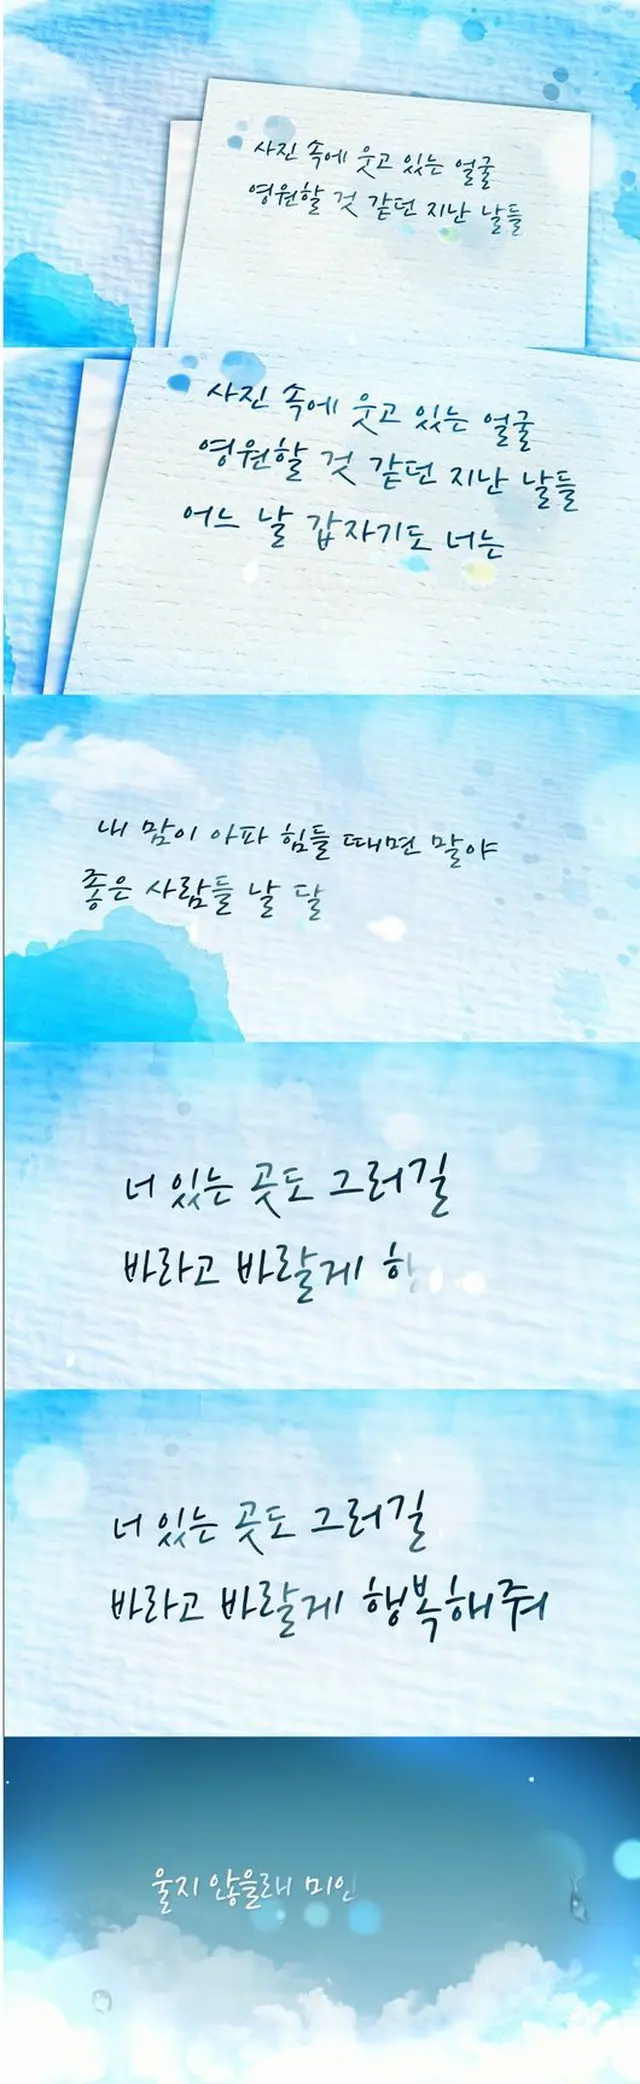 사진 속에 웃고 있는 얼굴
영원할 것 같던 지난 날들
사진 속에 웃고 있는 얼굴
영원할 것 같던 지난 날들
어느 날 갑자기도 너는
내 맘이 아파 힘들 때면 말야
좋은 사람들 날 달
너 있는 곳도 그러길
바라고 바랄게 행
너 있는 곳도 그러길
바라고 바랄게 행복해줘
울지 않을래 미안